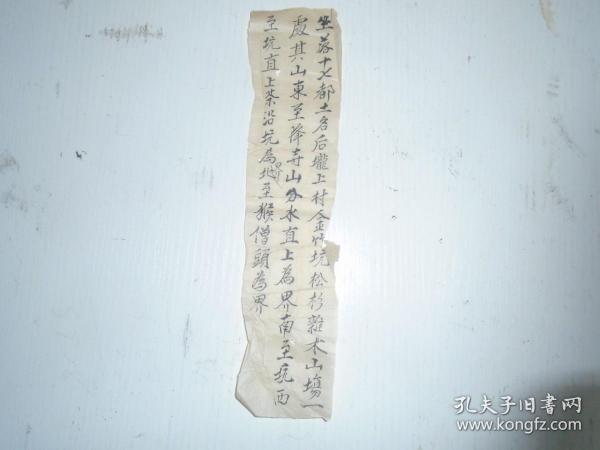 坐落十七都土名后壠上村金竹坑松杉雜木山塲一
處其山東至降寺山分水直上為界南至坑西
至坑直上茶沿坑為界地至猴僧頭為界
孔夫子旧书网
www.kongfz.com